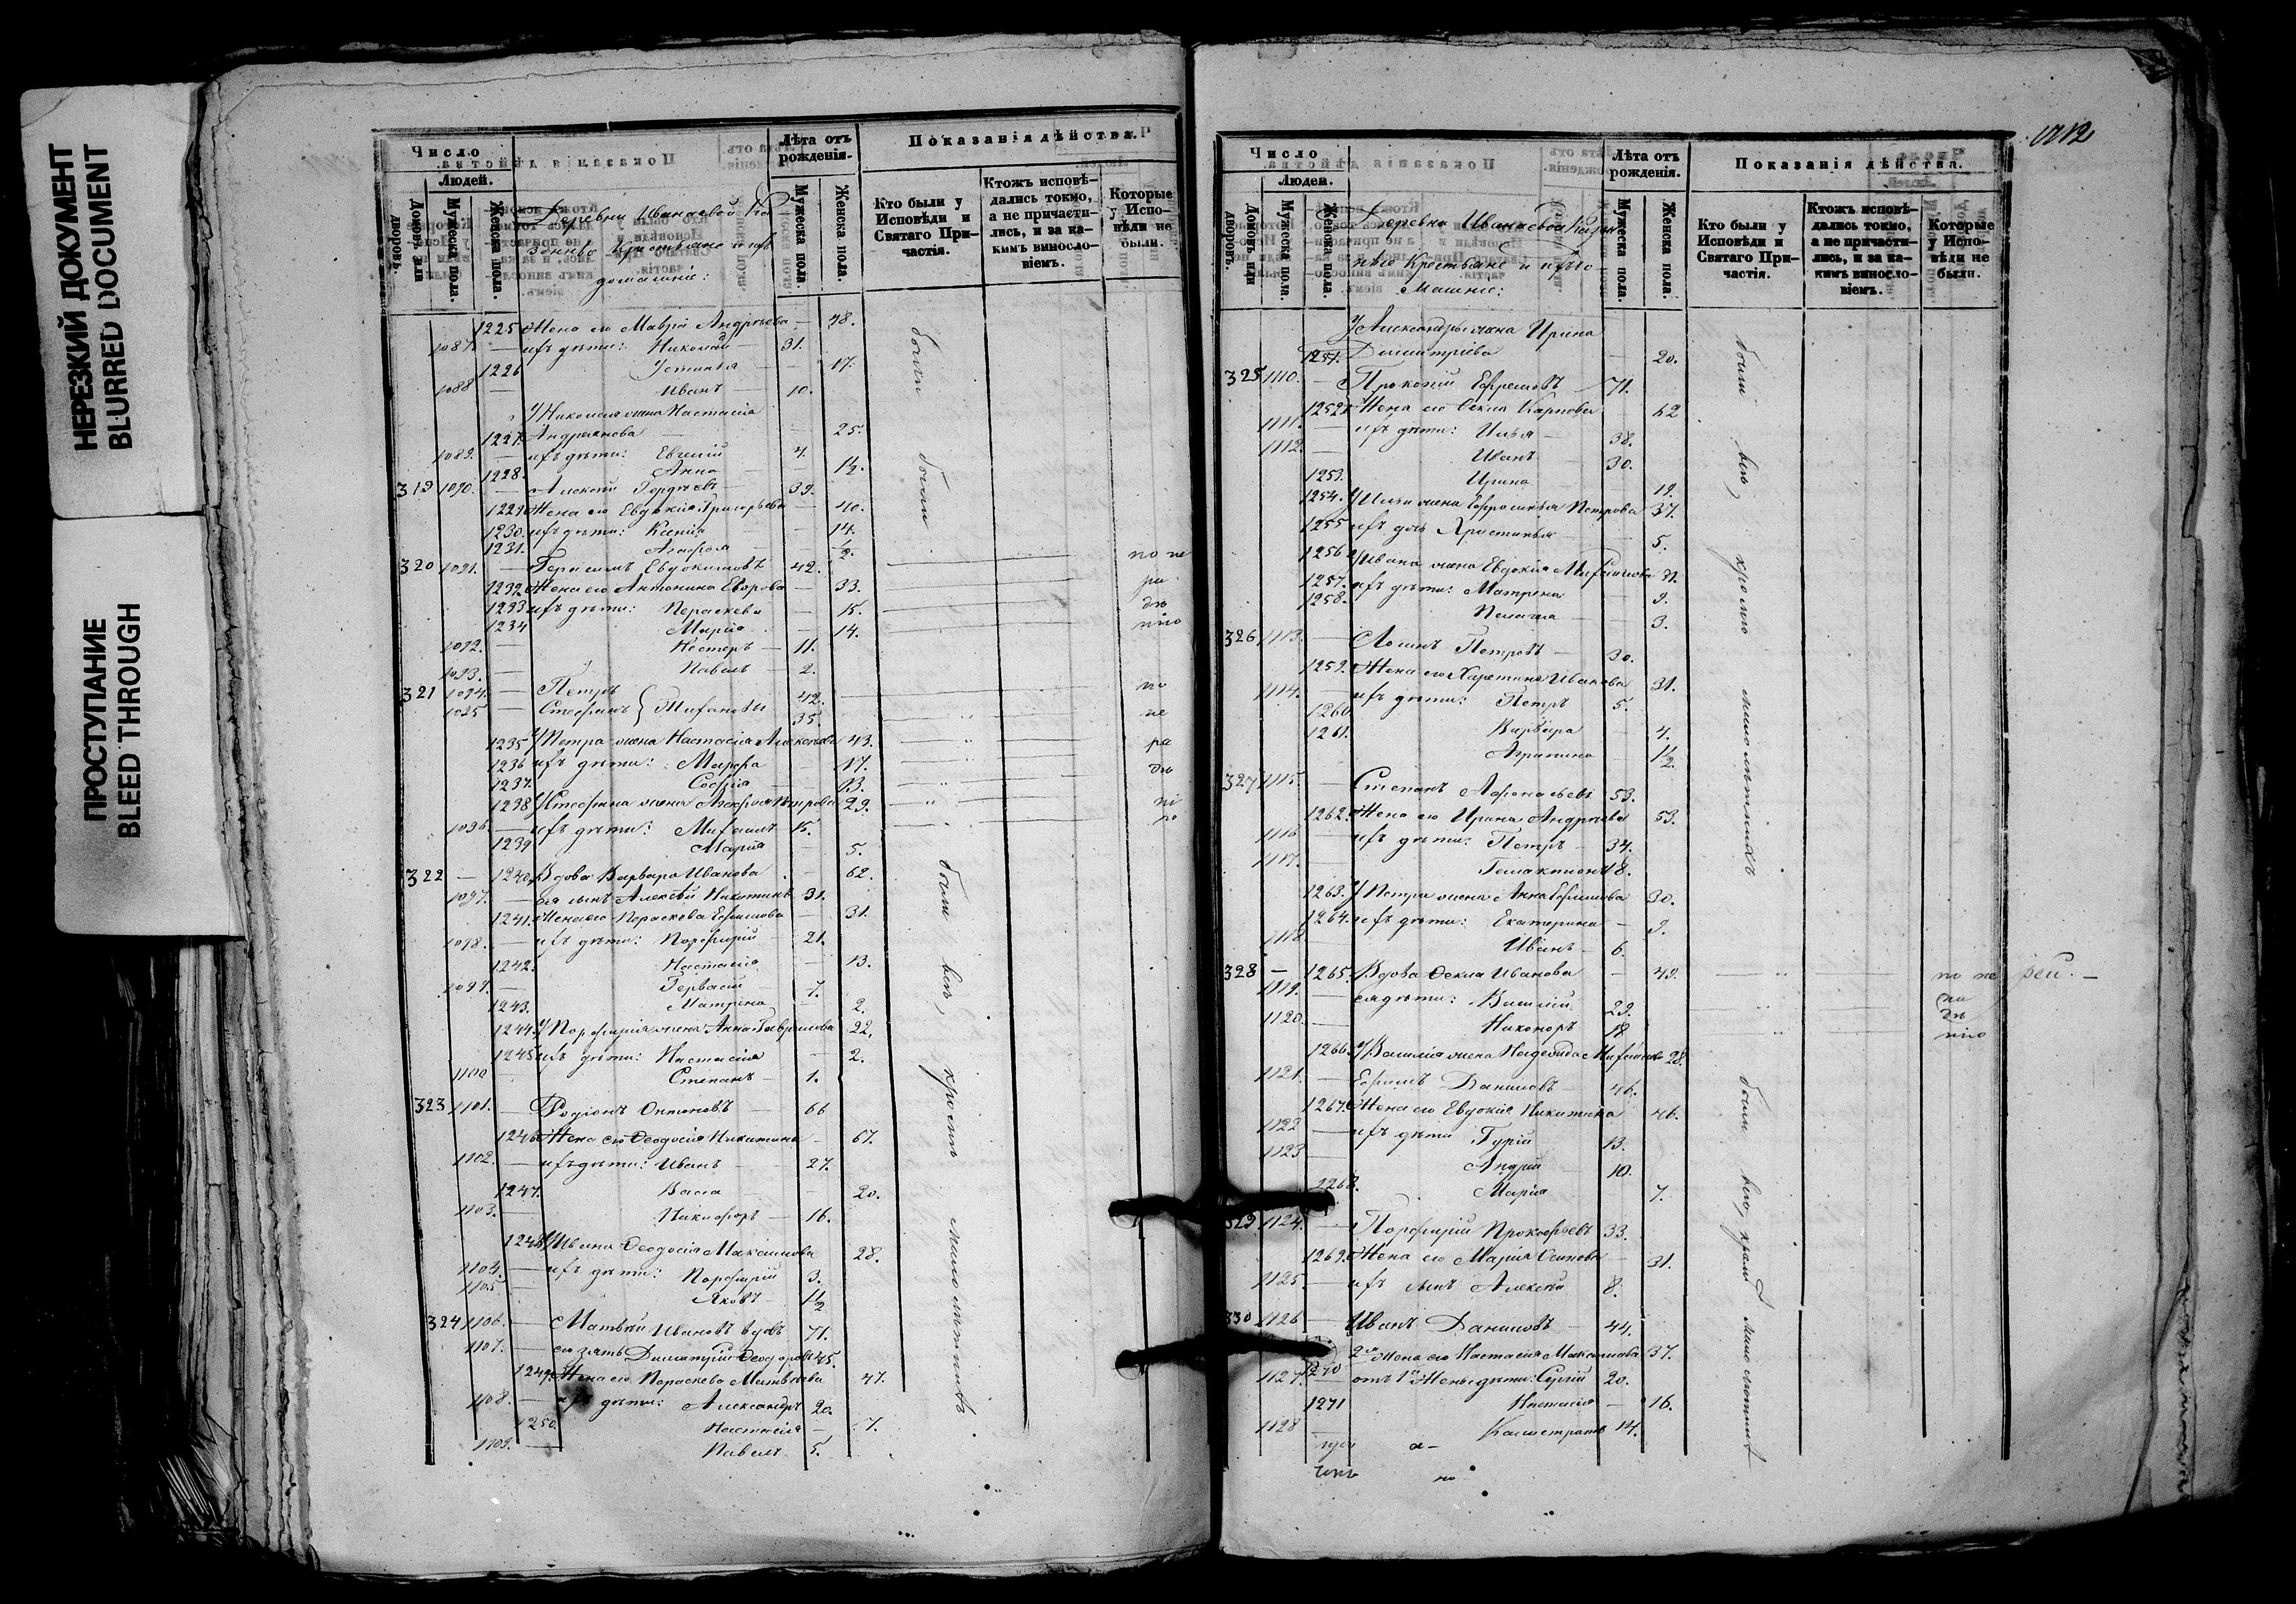 НЕРЕЗКИЙ ДОКУМЕНТ
BLURRED DOCUMENT
ПРОСТУПАНИЕ
BLEED THROUGH
Число
Людей.
Домовъ или дворовъ.
Мужеска пола.
Женска пола.
Деревни Иванаевой
Крестьяне и ихъ
домашніе:
Лѣта отъ рожденія.
Мужеска пола.
Женска пола.
Показанія дѣйства.
Кто были у Исповѣди и Святаго Причастія.
Ктожъ исповѣдались токмо, а не причастились, и за какимъ винословіемъ.
Которые у Исповѣди не были.
1225 Жена его Мавра Андрѣева — 48.
1087. — ихъ дѣти: Николай — 31.
1226 Устинья — 17.
1088 — Иванъ — 10.
У Николая жена Настасія
1227. Андреянова — 25.
1089. — ихъ дѣти: Евгеній 4.
1228. Анна — 1½.
319 1090. — Алексѣй Гордѣевъ — 39.
1229 Жена его Евдокія Григорьева — 40.
1230. ихъ дѣти: Ксенія — 14.
1231. Агафья — ½.
320 1091. — Герасимъ Евдокимовъ 42.
1232 Жена его Антонина Егорова — 33.
1233 ихъ дѣти: Параскева — 15.
1234 Марія — 14.
1092. — Нестеръ — 11.
1093. — Павелъ — 2.
321 1094. — Петръ
1095 — Стефанъ } Михайловы 42.
35.
1235 У Петра жена Настасія Алексѣева 43.
1236 ихъ дѣти: Марфа — 17.
1237. Софія — 13.
1238 У Стефана жена Агафья Петрова 29.
1096. — ихъ дѣти: Михаилъ 15.
1239 Марія — 5.
322 — 1240. Вдова Варвара Иванова — 62.
1097. — ея сынъ Алексѣй Никитинъ 31.
1241. Жена его Параскева Ефимова — 31.
1098. — ихъ дѣти: Порфирій — 21.
1242. Настасія — 13.
1099. — Гервасій 7.
1243. Матрена — 2.
1244. У Порфирія жена Анна Гаврилова 22.
1245 ихъ дѣти: Настасія — 2.
1100 Степанъ — 1.
323 1101. — Родіонъ Антоновъ — 66
1246 Жена его Ѳеодосія Никитина — 67.
1102. — ихъ дѣти: Иванъ — 27.
1247. Васса — 20.
1103. — Никифоръ — 16.
1248 У Ивана Ѳеодосія Максимова 28.
1104. — ихъ дѣти: Порфирій 3.
1105 — Яковъ — 1½
324 1106. — Матвѣй Ивановъ вдовъ 71.
1107. — его зять Димитрій Ѳеодоровъ 45.
1249. Жена его Параскева Матвѣева 47.
1108. — ихъ дѣти: Александръ 20.
1250. Настасія — 7.
1109. — Павелъ 5.
были
были
были всѣ, кромѣ малолѣтнихъ
Число
Людей.
Домовъ или дворовъ.
Мужеска пола.
Женска пола.
Деревни Иванаевой
Крестьяне и ихъ до
машніе:
Лѣта отъ рожденія.
Мужеска пола.
Женска пола.
Показанія дѣйства.
Кто были у Исповѣди и Святаго Причастія.
Ктожъ исповѣдались токмо, а не причастились, и за какимъ винословіемъ.
Которые у Исповѣди не были.
У Александра жена Ирина
1251. Димитріева — 20.
325 1110. — Прокопій Ефремовъ — 71.
1252 Жена его Ѳекла Карпова 62
1111. — ихъ дѣти: Илья — 38.
1112. — Иванъ — 30.
1253. Ирина 19.
1254. У Ильи жена Ефросинья Петрова 37.
1255 ихъ дочь Христинья — 5.
1256 У Ивана жена Евдокія Михайлова 31.
1257. ихъ дѣти: Матрена — 9.
1258. Пелагія — 3.
326 1113. — Логинъ Петровъ — 30.
1259. Жена его Харитина Иванова 31.
1114. — ихъ дѣти: Петръ 5.
1260 Варвара — 4.
1261. Агрипина — 1½.
327 1115. — Степанъ Афонасьевъ 53.
1262. Жена его Ирина Андрѣева 53.
1116 ихъ дѣти: Петръ — 34.
1117. — Галактіонъ 18.
1263. У Петра жена Анна Ефимова 30.
1264. ихъ дѣти: Екатерина — 9.
1118 Иванъ — 6.
328 — 1265. Вдова Ѳекла Иванова — 49.
1119. — ея дѣти: Василій 29.
1120. — Никоноръ — 18
1266. У Василія жена Надежда Михайлова 28.
1121. — Ефимъ Даниловъ — 46.
1267. Жена его Евдокія Никитина 46.
1122 — ихъ дѣти Гурій 13.
1123 — Андрей — 10.
1268. Марія — 7.
329 1124. — Порфирій Прокофьевъ 33.
1269. Жена его Марія Осипова — 31.
1125. — ихъ сынъ Алексѣй 8.
330 1126 — Иванъ Даниловъ — 44.
1270 2я Жена его Настасія Максимова 37.
1127. — отъ 1й Жены дѣти: Сергій 20.
1271 Настасія — 16.
1128 — Калистратъ 14.
были всѣ, кромѣ малолѣтнихъ